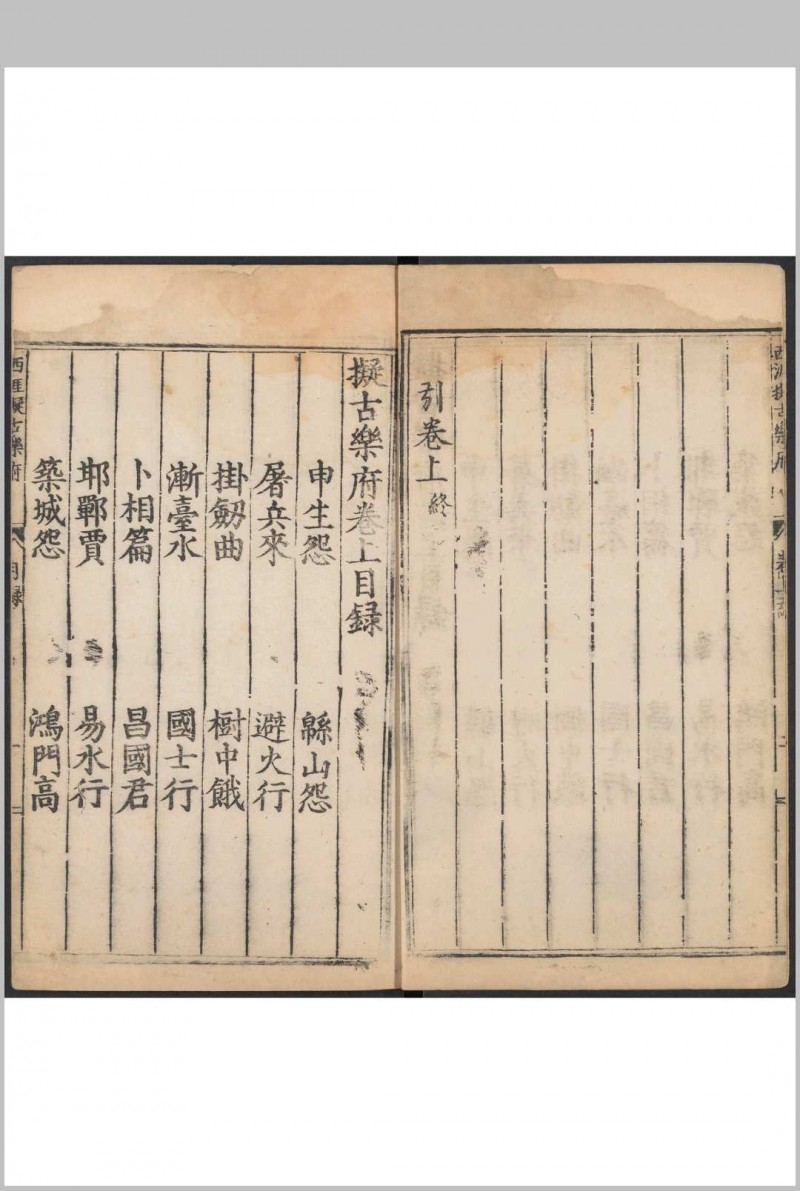 引卷上終
擬古樂府卷上目録
申生怨 緜山怨
屠兵來 避火行
掛劒曲 樹中餓
漸臺水 國士行
卜相篇 昌國君
邯鄲賈 易水行
築城怨 鴻門高
西涯擬古樂府 目録